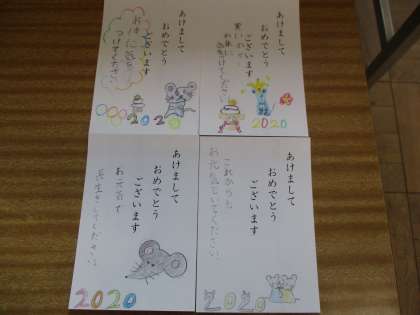 あけまして
おめでとう
ございます
お体に気を
つけてください
2020
あけまして
おめでとう
ございます
寒いので
お体に
気を付けてください
2020
あけまして
おめでとう
ございます
お元気で
長生きしてください。
2020
あけまして
おめでとう
ございます
これからも
お元気でいてください。
2020